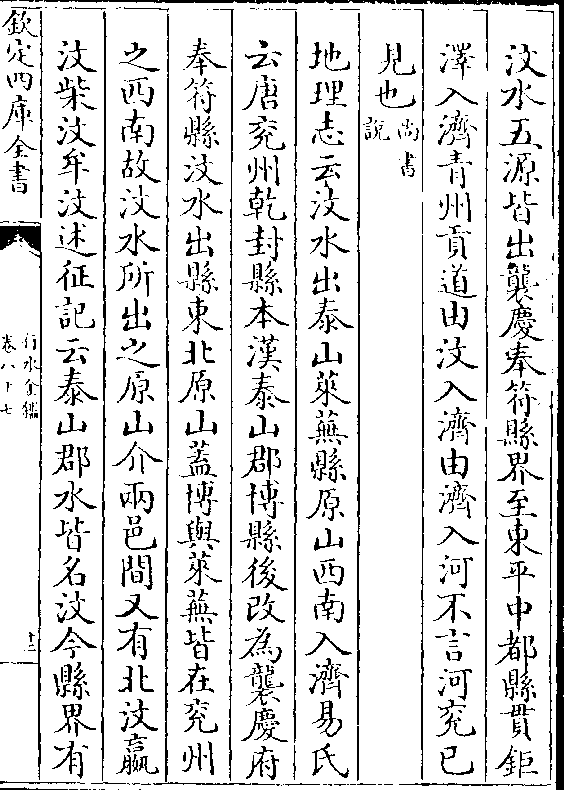 汶水五源皆出襲慶奉符縣界至東平中都縣貫鉅
澤入濟青州貢道由汶入濟由濟入河不言河兖已
見也尚書
說
地理志云汶水出泰山萊蕪縣原山西南入濟易氏
云唐兖州乾封縣本漢泰山郡博縣後改為襲慶府
奉符縣汶水出縣東北原山蓋博與萊蕪皆在兖州
之西南故汶水所出之原山介兩邑間又有北汶嬴
汶柴汶牟汶述征記云泰山郡水皆名汶今縣界有
欽定四庫全書
行水金鑑
卷八十七
十三